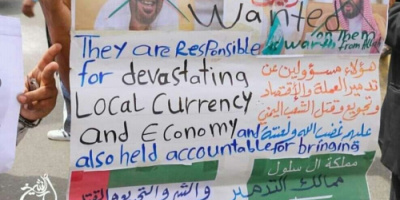 Wanted
They are Responsible
for devastating
Local Currency
and Economy and
also held accountable for bringing
هؤلاء مسؤولين عن
تدمير العملة والإقتصاد
وتجويع وقتل الشعب اليمني
عليهم غضب الله ولعنته
مملكة ال سلول
ممالك التدمير
والشر والتجويع والقتل